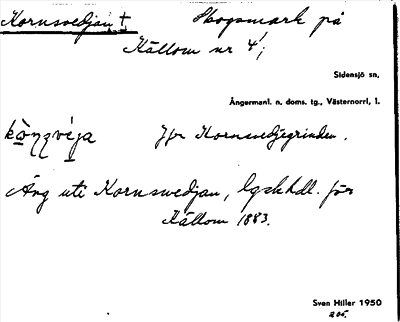 Kornsvedjan † Skogsmark på
Källom nr 4¹;
Sidensjö sn,
Ångermanl. n. doms. tg., Västernorrl. l.
Jfr Kornsvedjegrinden.
Äng uti Kornswedjan, lgskhdl. för
Källom 1883.
Sven Hiller 1950